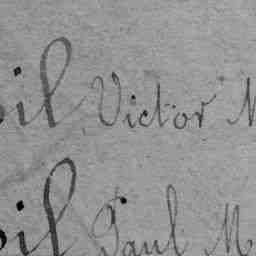 il Victor M
il Paul M